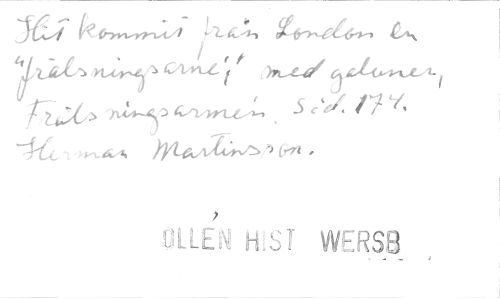 Hit kommit från London en
"frälsningsarmé", med galuner,
Frälsningsarmén. Sid. 174.
Herman Martinsson.
OLLÉN HIST WERSB